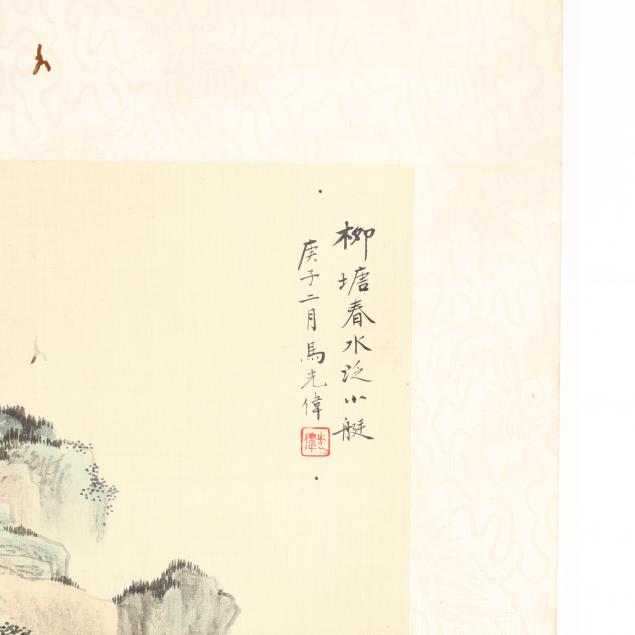 柳塘春水泛小艇
庚子二月馬光偉
光偉